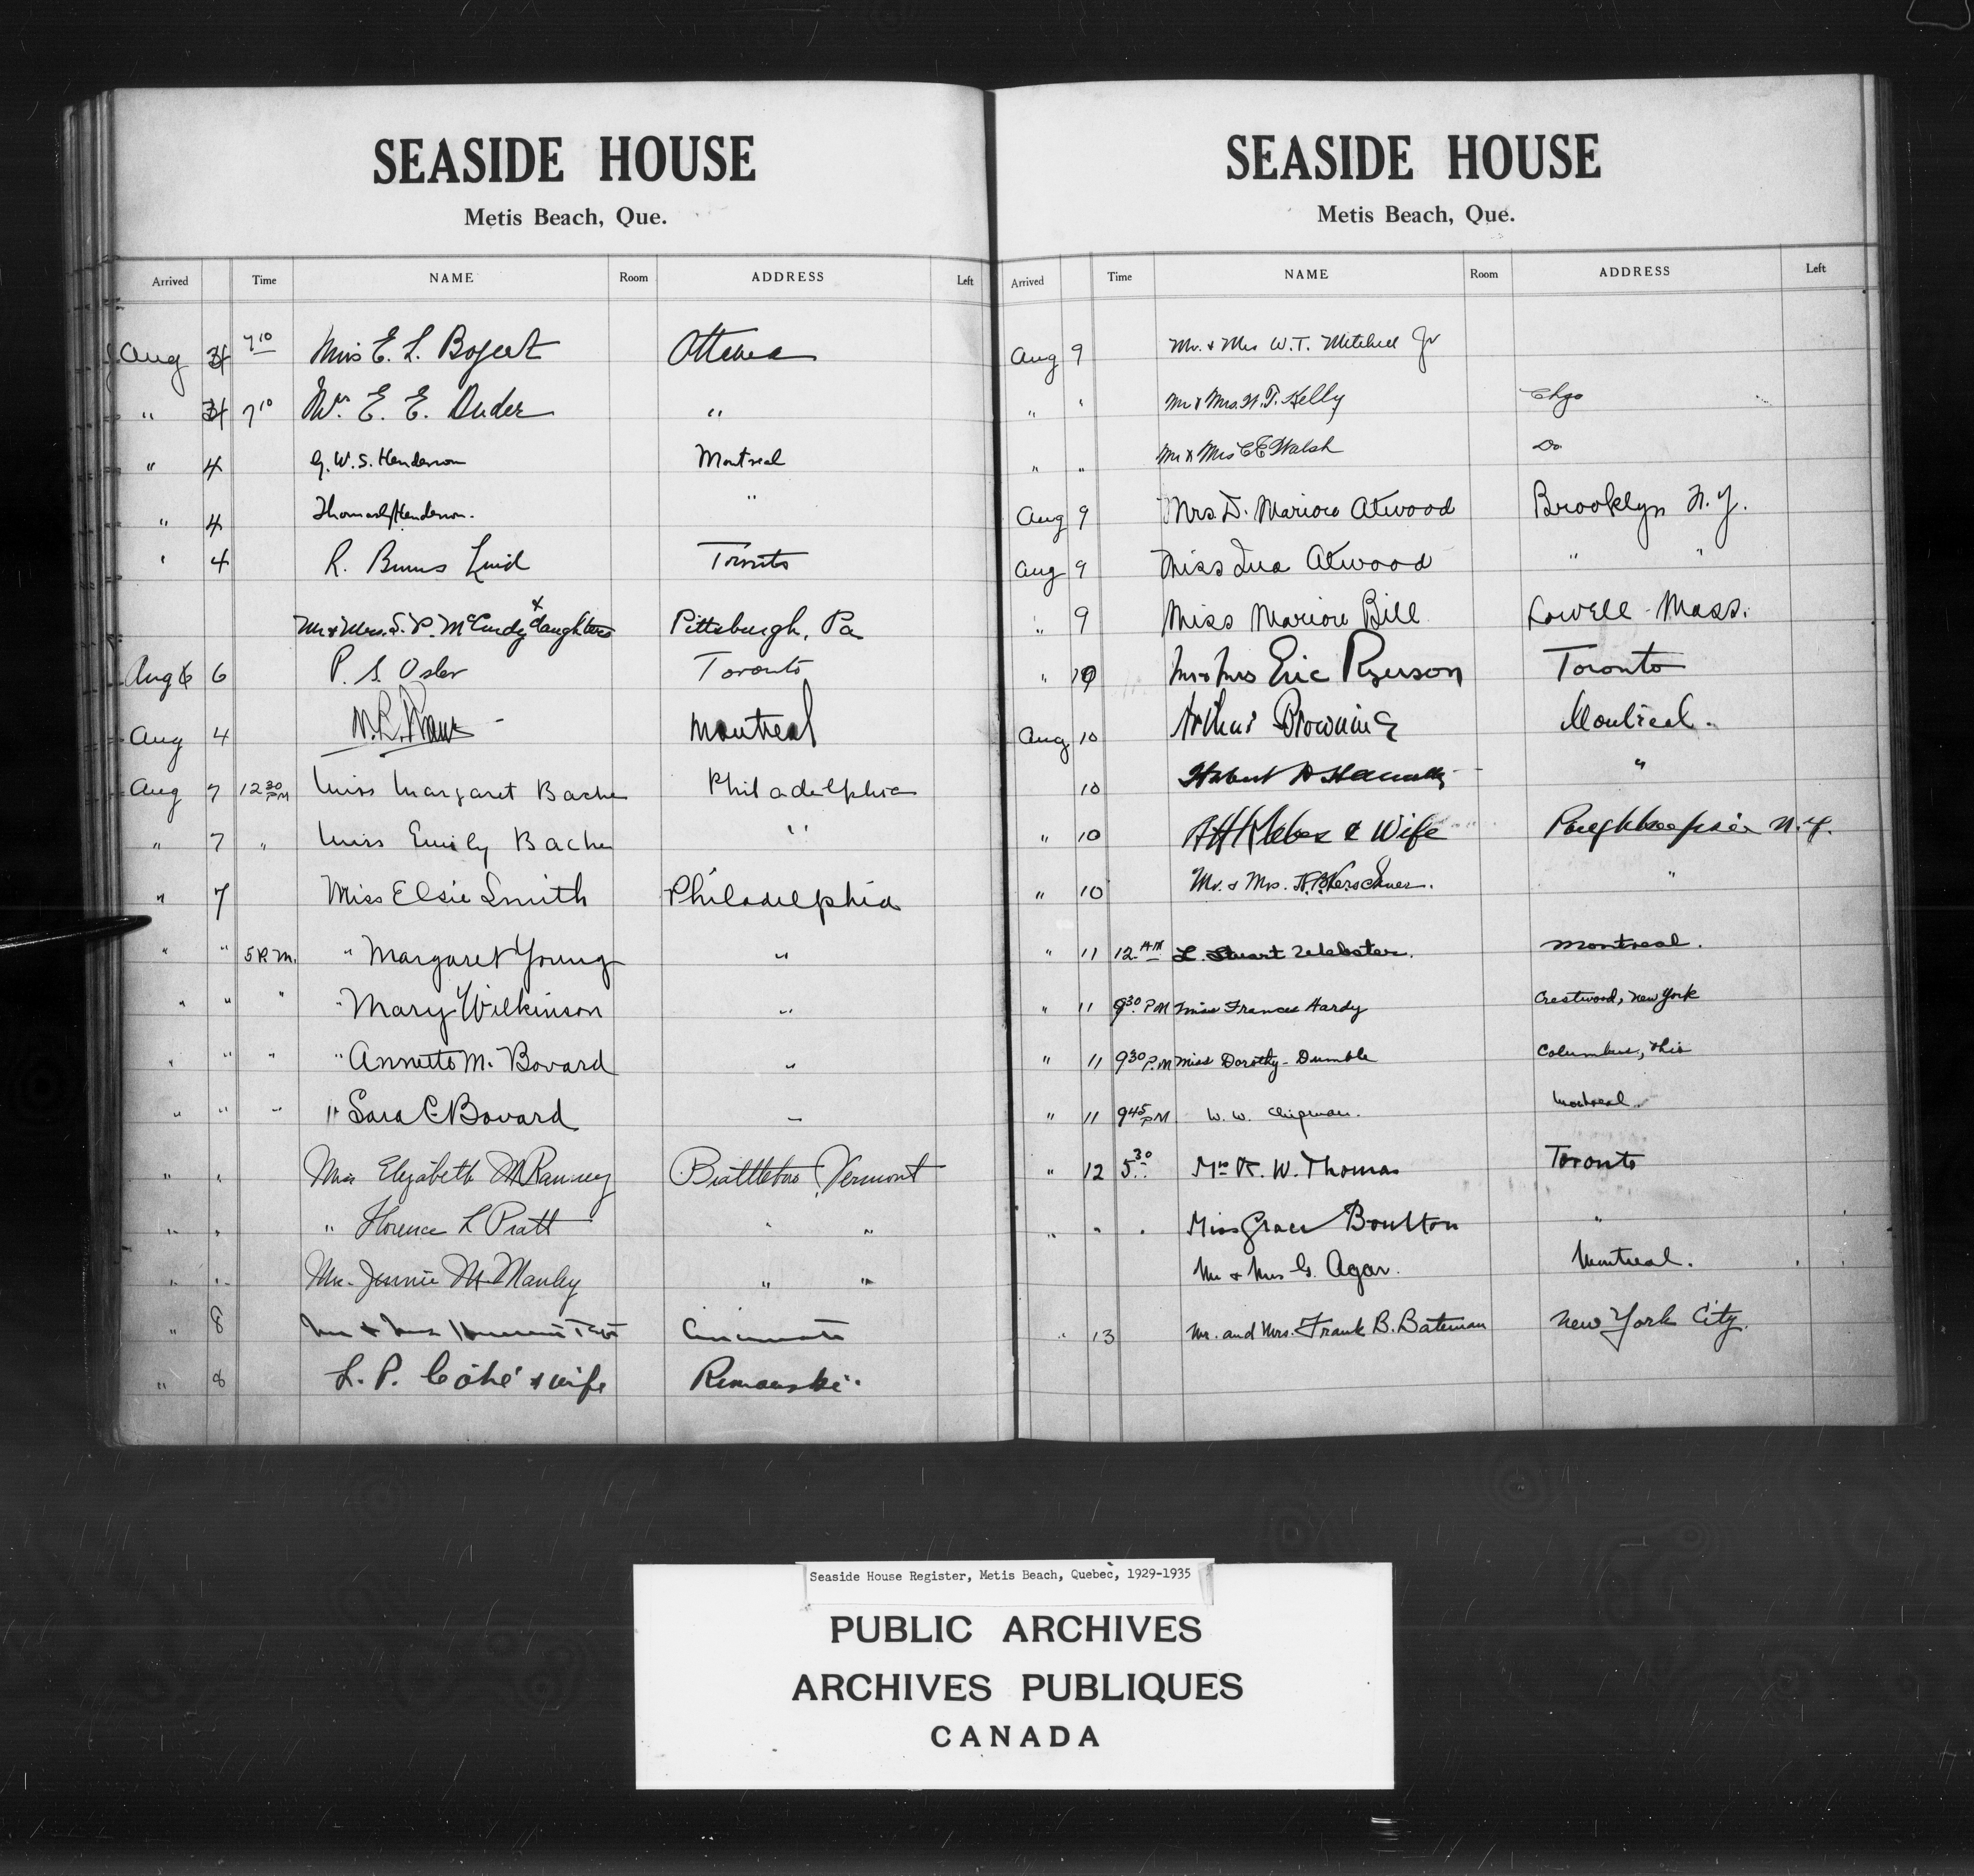 SEASIDE HOUSE
Metis Beach, Que.
Arrived Time NAME Room ADDRESS Left
Aug 4 7 10 Miss E. L. Bogert Ottawa
" 4 7 10 Mrs. E. E. Duder "
" 4 G. W. S. Henderson Montreal
" 4 Thomas Henderson. "
' 4 R. Burns Toronto
Mr & Mrs. S. P. McCurdy & daughters Pittsburgh, Pa
Aug 6 P. S. Osler Toronto
Aug 4 Montreal
Aug 7 12 30 PM Miss Margaret Bache Philadelphia
" 7 " Miss Emily Bache "
" 7 Miss Elsie Smith Philadelphia
" " 5 P.M. " Margaret Young "
" " " " Mary Wilkinson "
" " " " Annette M. Bovard "
" " " " Sara C. Bovard "
" " Miss Elizabeth M Ranney Brattleboro, Vermont
" " " Florence L Pratt " "
" " Mrs. Jennie M. Manley " "
" 8 Mr & Mrs Cincinnati
" 8 L. P. Côté & wife Rimouski
SEASIDE HOUSE
Metis Beach, Que.
Arrived Time NAME Room ADDRESS Left
Aug 9 Mr. & Mrs W. T. Mitchell Jr
" " Mr & Mrs. W. T. Kelly Chgo
" " Mr & Mrs C E Walsh Do
Aug 9 Mrs. D. Marion Atwood Brooklyn N. Y.
Aug 9 Miss Ina Atwood " "
" 9 Miss Marion Bill Lowell Mass.
" 10 Mr & Mrs Eric Ryerson Toronto
Aug 10 Arthur Browning Montreal.
10 "
" 10 & Wife Poughkeepsie N.Y.
" 10 Mr. & Mrs. "
" 11 12 AM L. Stuart Webster. Montreal.
" 11 9 30 P.M Miss Frances Hardy Crestwood, New York
" 11 9 30 P.M Miss Dorothy Dumble Columbus, Ohio
" 11 9 45 PM W. W. Chipman. Montreal.
" 12 5 30 Mrs K. W. Thomas Toronto
" " " Miss Grace Boulton "
Mr & Mrs G. Agar. Montreal.
" 13 Mr. and Mrs. Frank B. Bateman New York City.
Seaside House Register, Metis Beach, Quebec, 1929-1935
PUBLIC ARCHIVES
ARCHIVES PUBLIQUES
CANADA